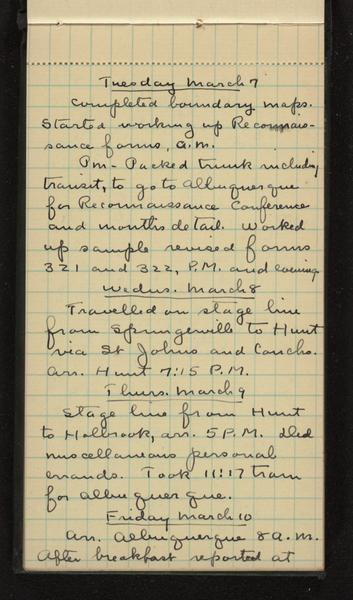 Tuesday March 7
Completed boundary maps.
Started working up Reconnais-
sance forms, a.m.
Pm - Packed trunk including
transit, to go to Albuquerque
for Reconnaissance Conference
and months detail. Worked
up sample revised forms
321 and 322, P.M. and evening
Wednes. March 8
Travelled on stage line
from Springerville to Hunt
via St Johns and Concho.
arr. Hunt 7:15 P.M.
Thurs. March 9
Stage line from Hunt
to Holbrook, arr. 5 P.M. Did
miscellaneous personal
errands. Took 11:17 train
for Albuquerque.
Friday March 10
Arr. Albuquerque 8 a.m.
After breakfast reported at